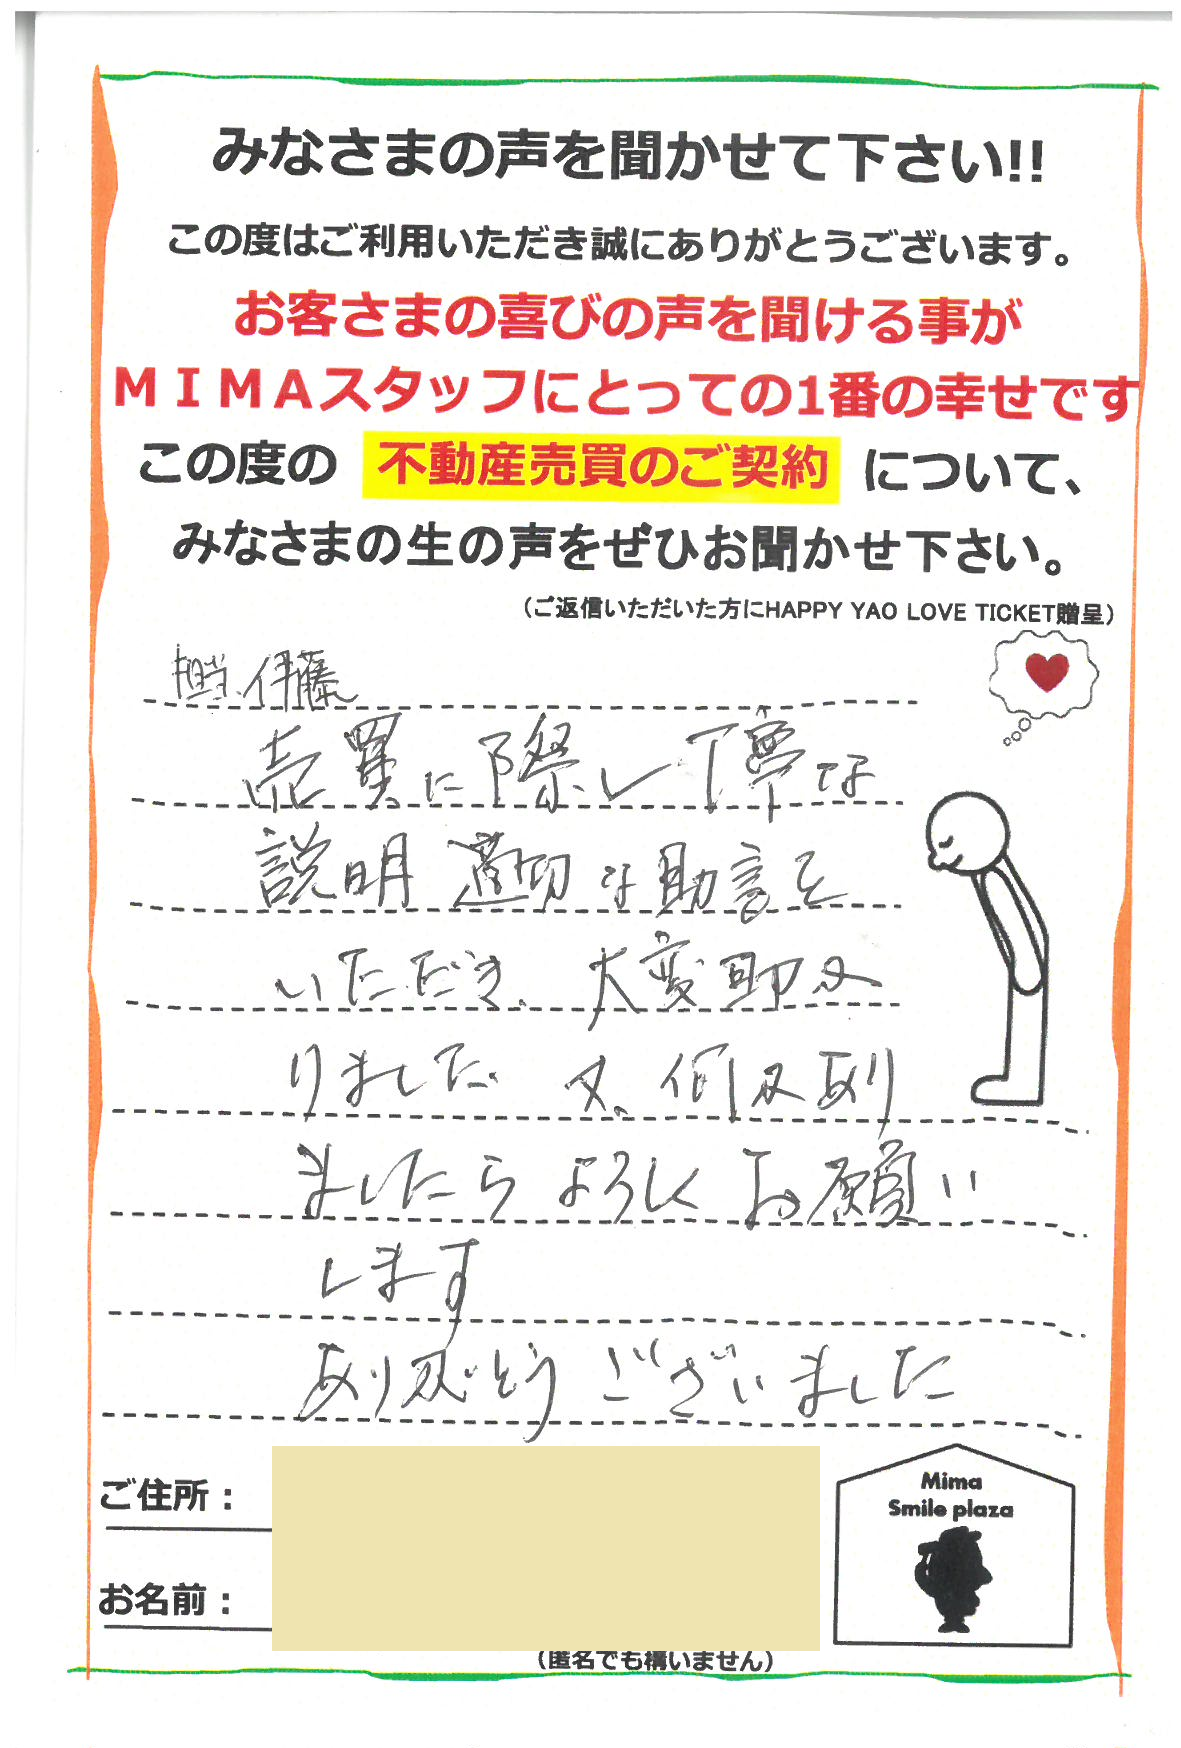 みなさまの声を聞かせて下さい!!
この度はご利用いただき誠にありがとうございます。
お客さまの喜びの声を聞ける事が
ＭＩＭＡスタッフにとっての1番の幸せです
この度の 不動産売買のご契約 について、
みなさまの生の声をぜひお聞かせ下さい。
（ご返信いただいた方にHAPPY YAO LOVE TICKET贈呈）
担当 伊藤
売買に際し丁寧な
説明 適切な助言を
いただき、大変助か
りました 又、何かあり
ましたら よろしく お願い
します
ありがとう ございました
ご住所：
お名前：
（匿名でも構いません）
Mima
Smile plaza